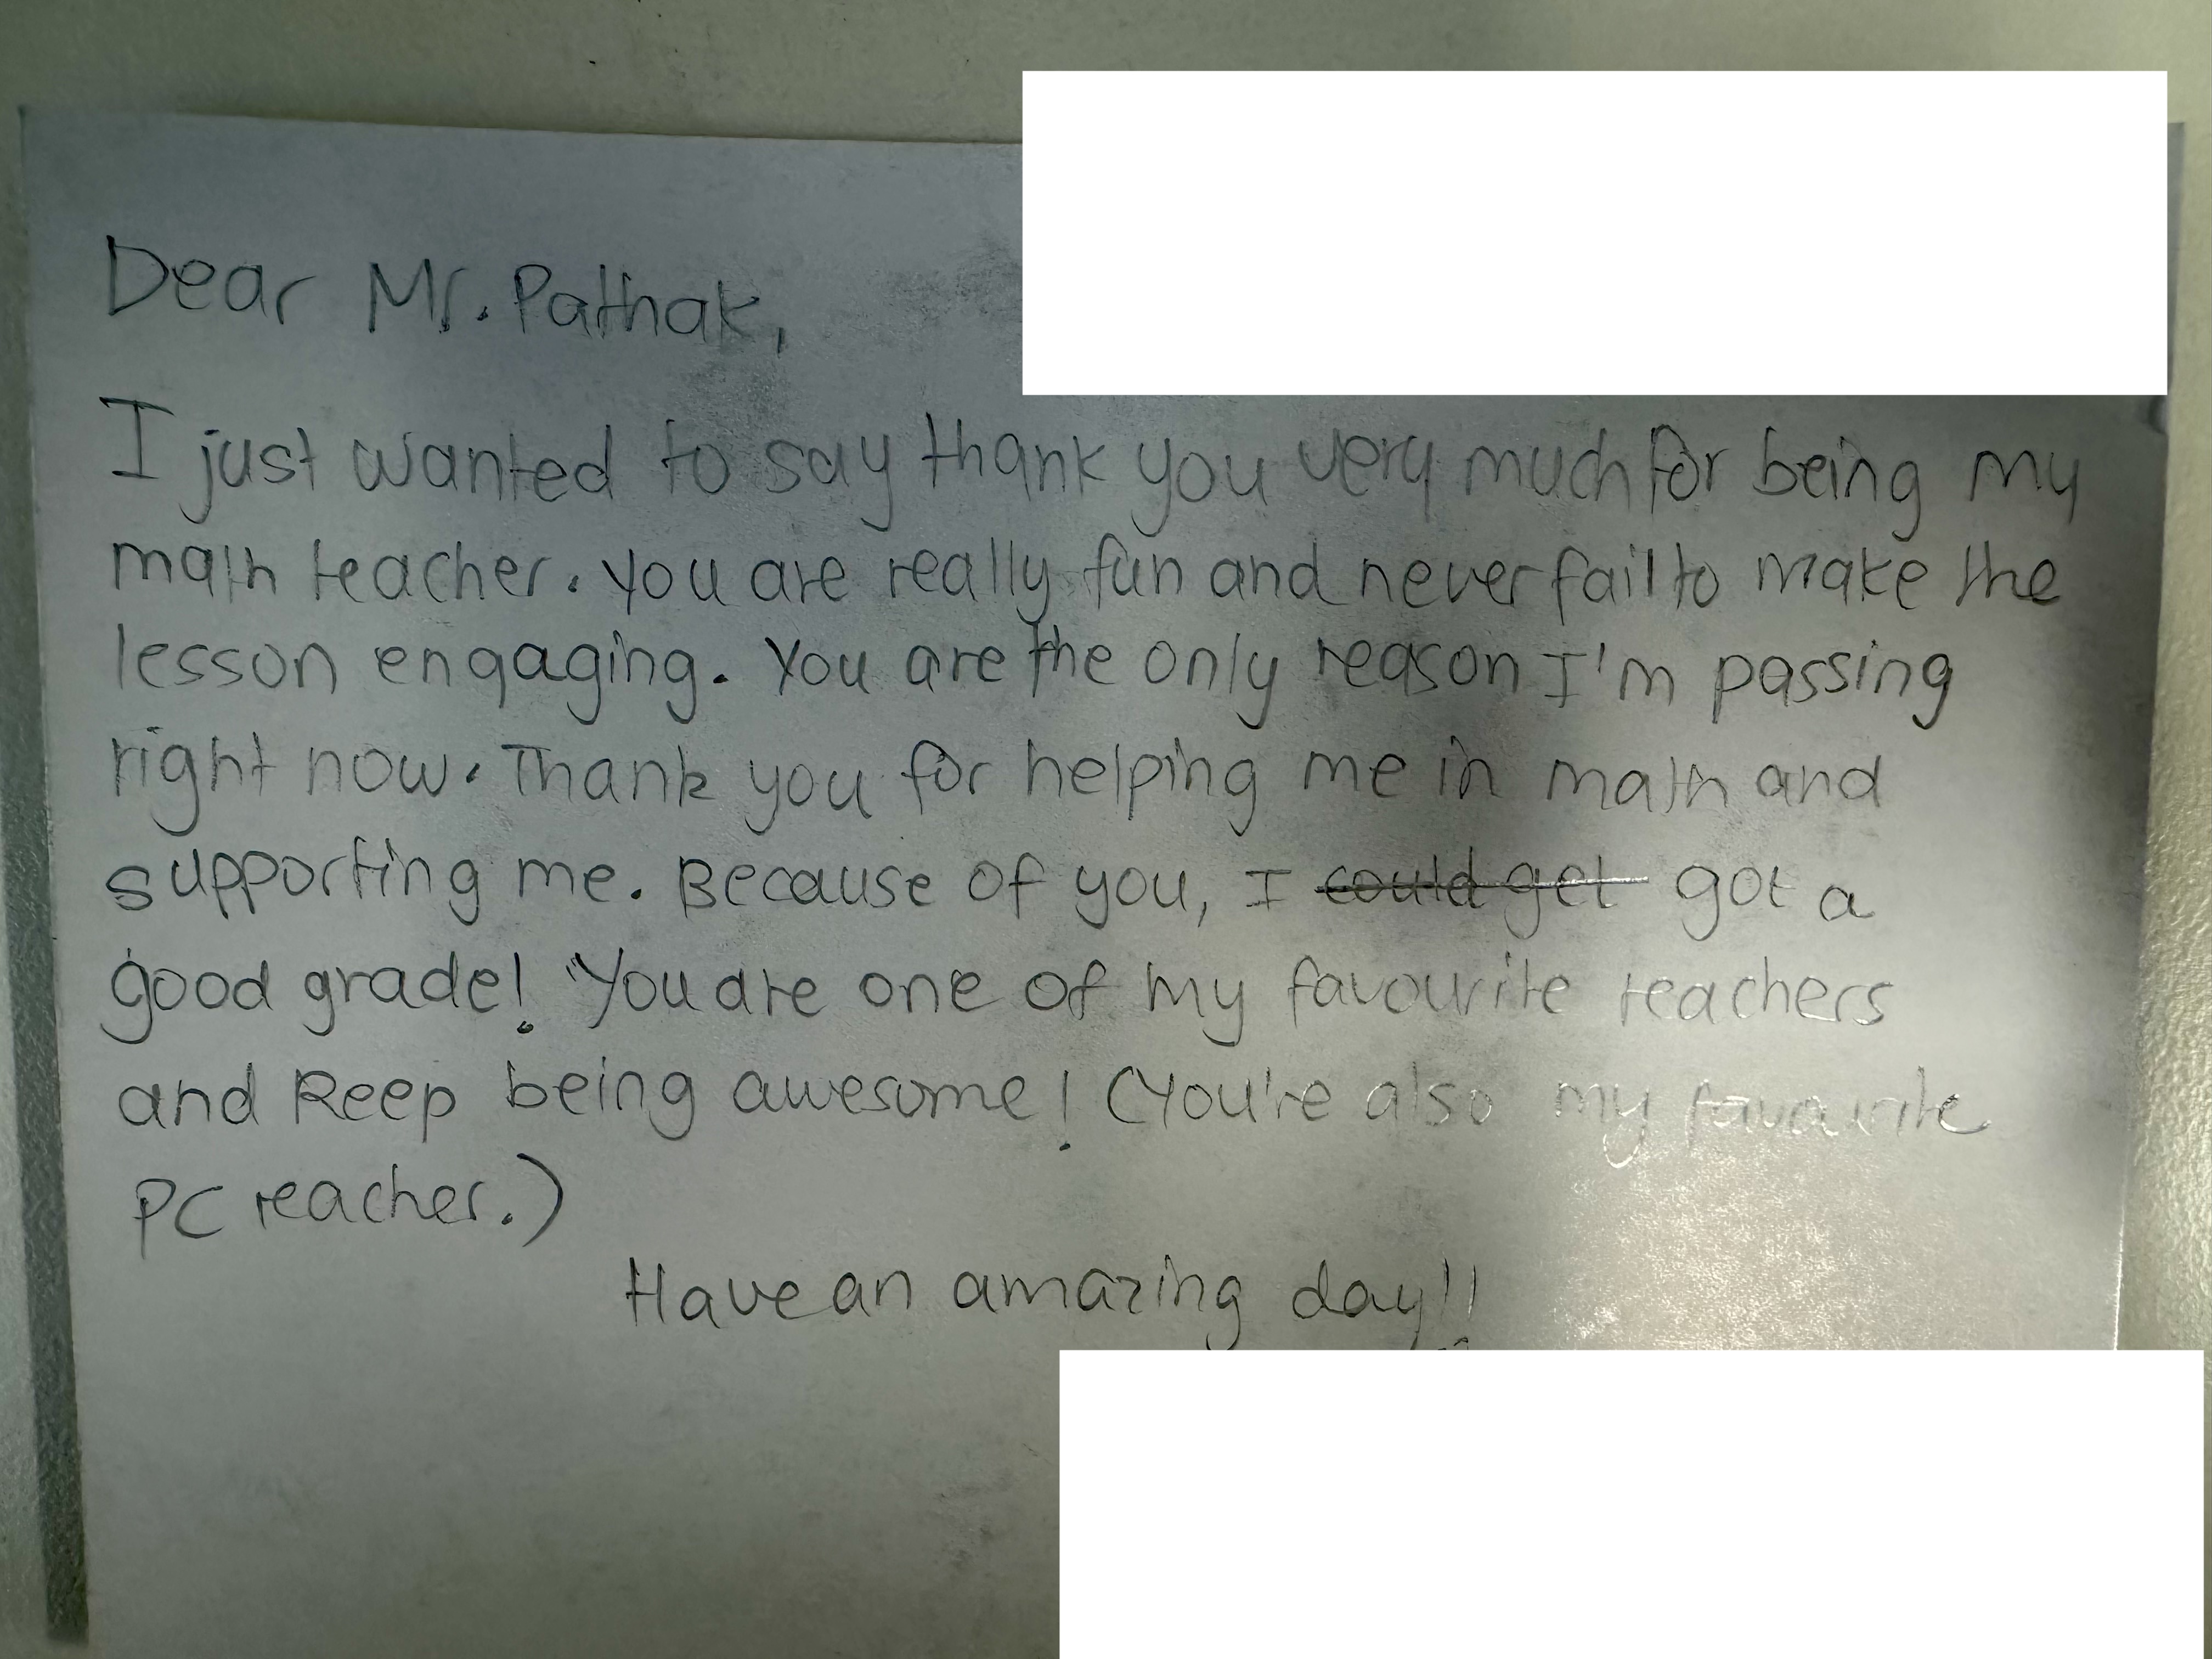 Dear Mr. Pathak,
I just wanted to say thank you very much for being my
math teacher. You are really fun and never fail to make the
lesson engaging. You are the only reason I'm passing
right now. Thank you for helping me in math and
supporting me. Because of you, I could get got a
good grade! You are one of my favourite teachers
and keep being awesome! (You're also my favourite
PC teacher.)
Have an amazing day!!